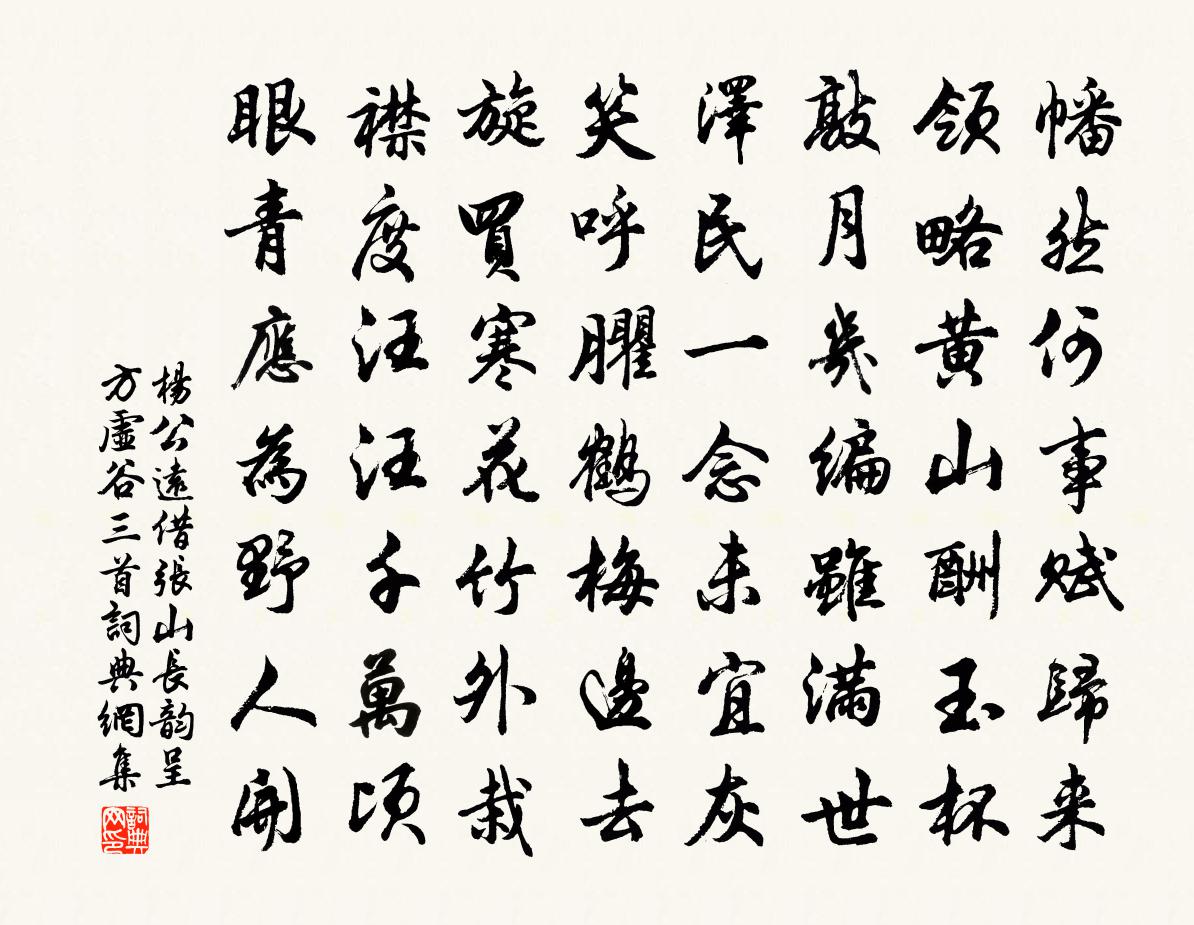 幡然何事賦歸来
領略黄山酬玉杯
敲月幾編雖满世
澤民一念未宜灰
笑呼臞鶴梅邊去
旋買寒花竹外栽
襟度汪汪千萬頃
眼青應為野人開
楊公遠借張山長韵呈
方虛谷三首詞典網集
詞典网印